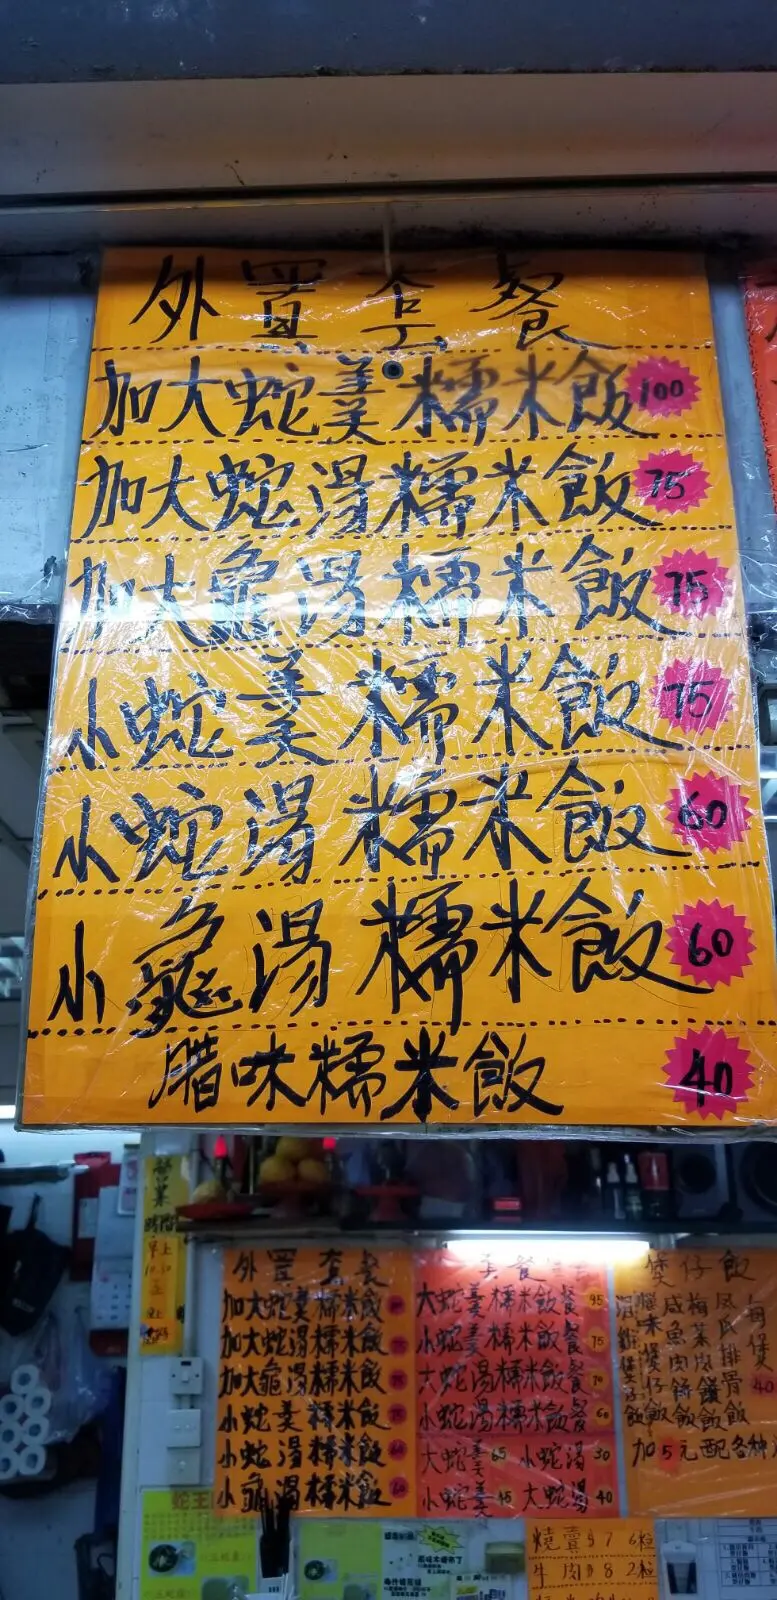 外買套餐
加大蛇羹糯米飯 100
加大蛇湯糯米飯 75
加大龜湯糯米飯 75
小蛇羹糯米飯 75
小蛇湯糯米飯 60
小龜湯糯米飯 60
腊味糯米飯 40
營業時間
早上
外買套餐
加大蛇羹糯米飯
加大蛇湯糯米飯
加大龜湯糯米飯
小蛇羹糯米飯
小蛇湯糯米飯
小龜湯糯米飯
大蛇羹糯米飯餐 95
小蛇羹糯米飯餐 75
大蛇湯糯米飯餐 70
小蛇湯糯米飯餐 60
大蛇羹 65 小蛇湯 30
小蛇羹 45 大蛇湯 40
煲仔飯
每煲 40
鳳爪排骨飯
臘味煲仔飯
加5元配各种
蛇王
燒賣 $7 6粒
牛肉 $8 2粒